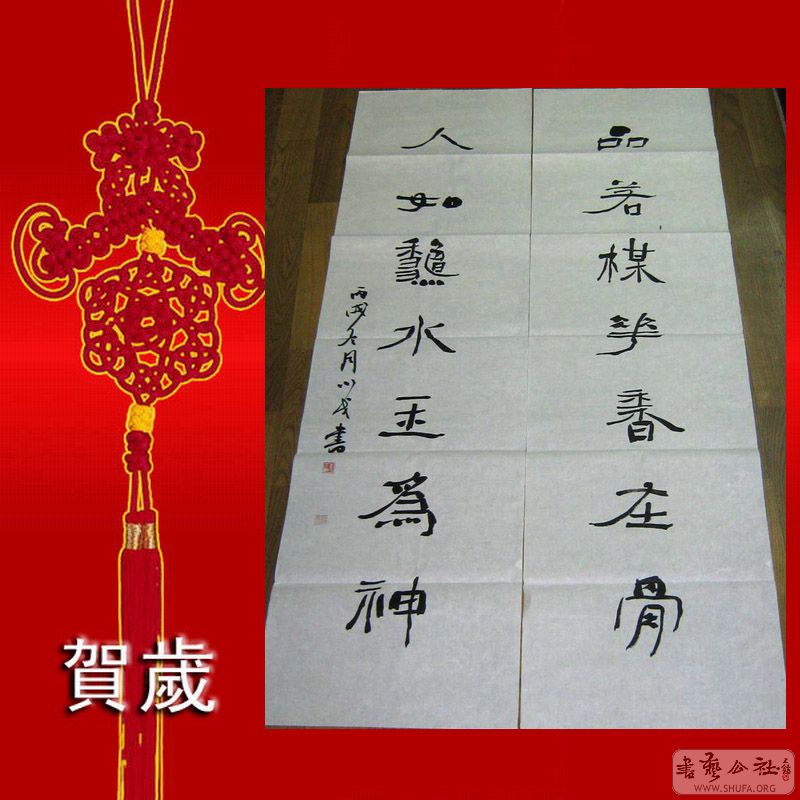 品若楳華香在骨
人如龝水玉為神
丙戌冬月 書
賀歲
書藝公社
WWW.SHUFA.ORG